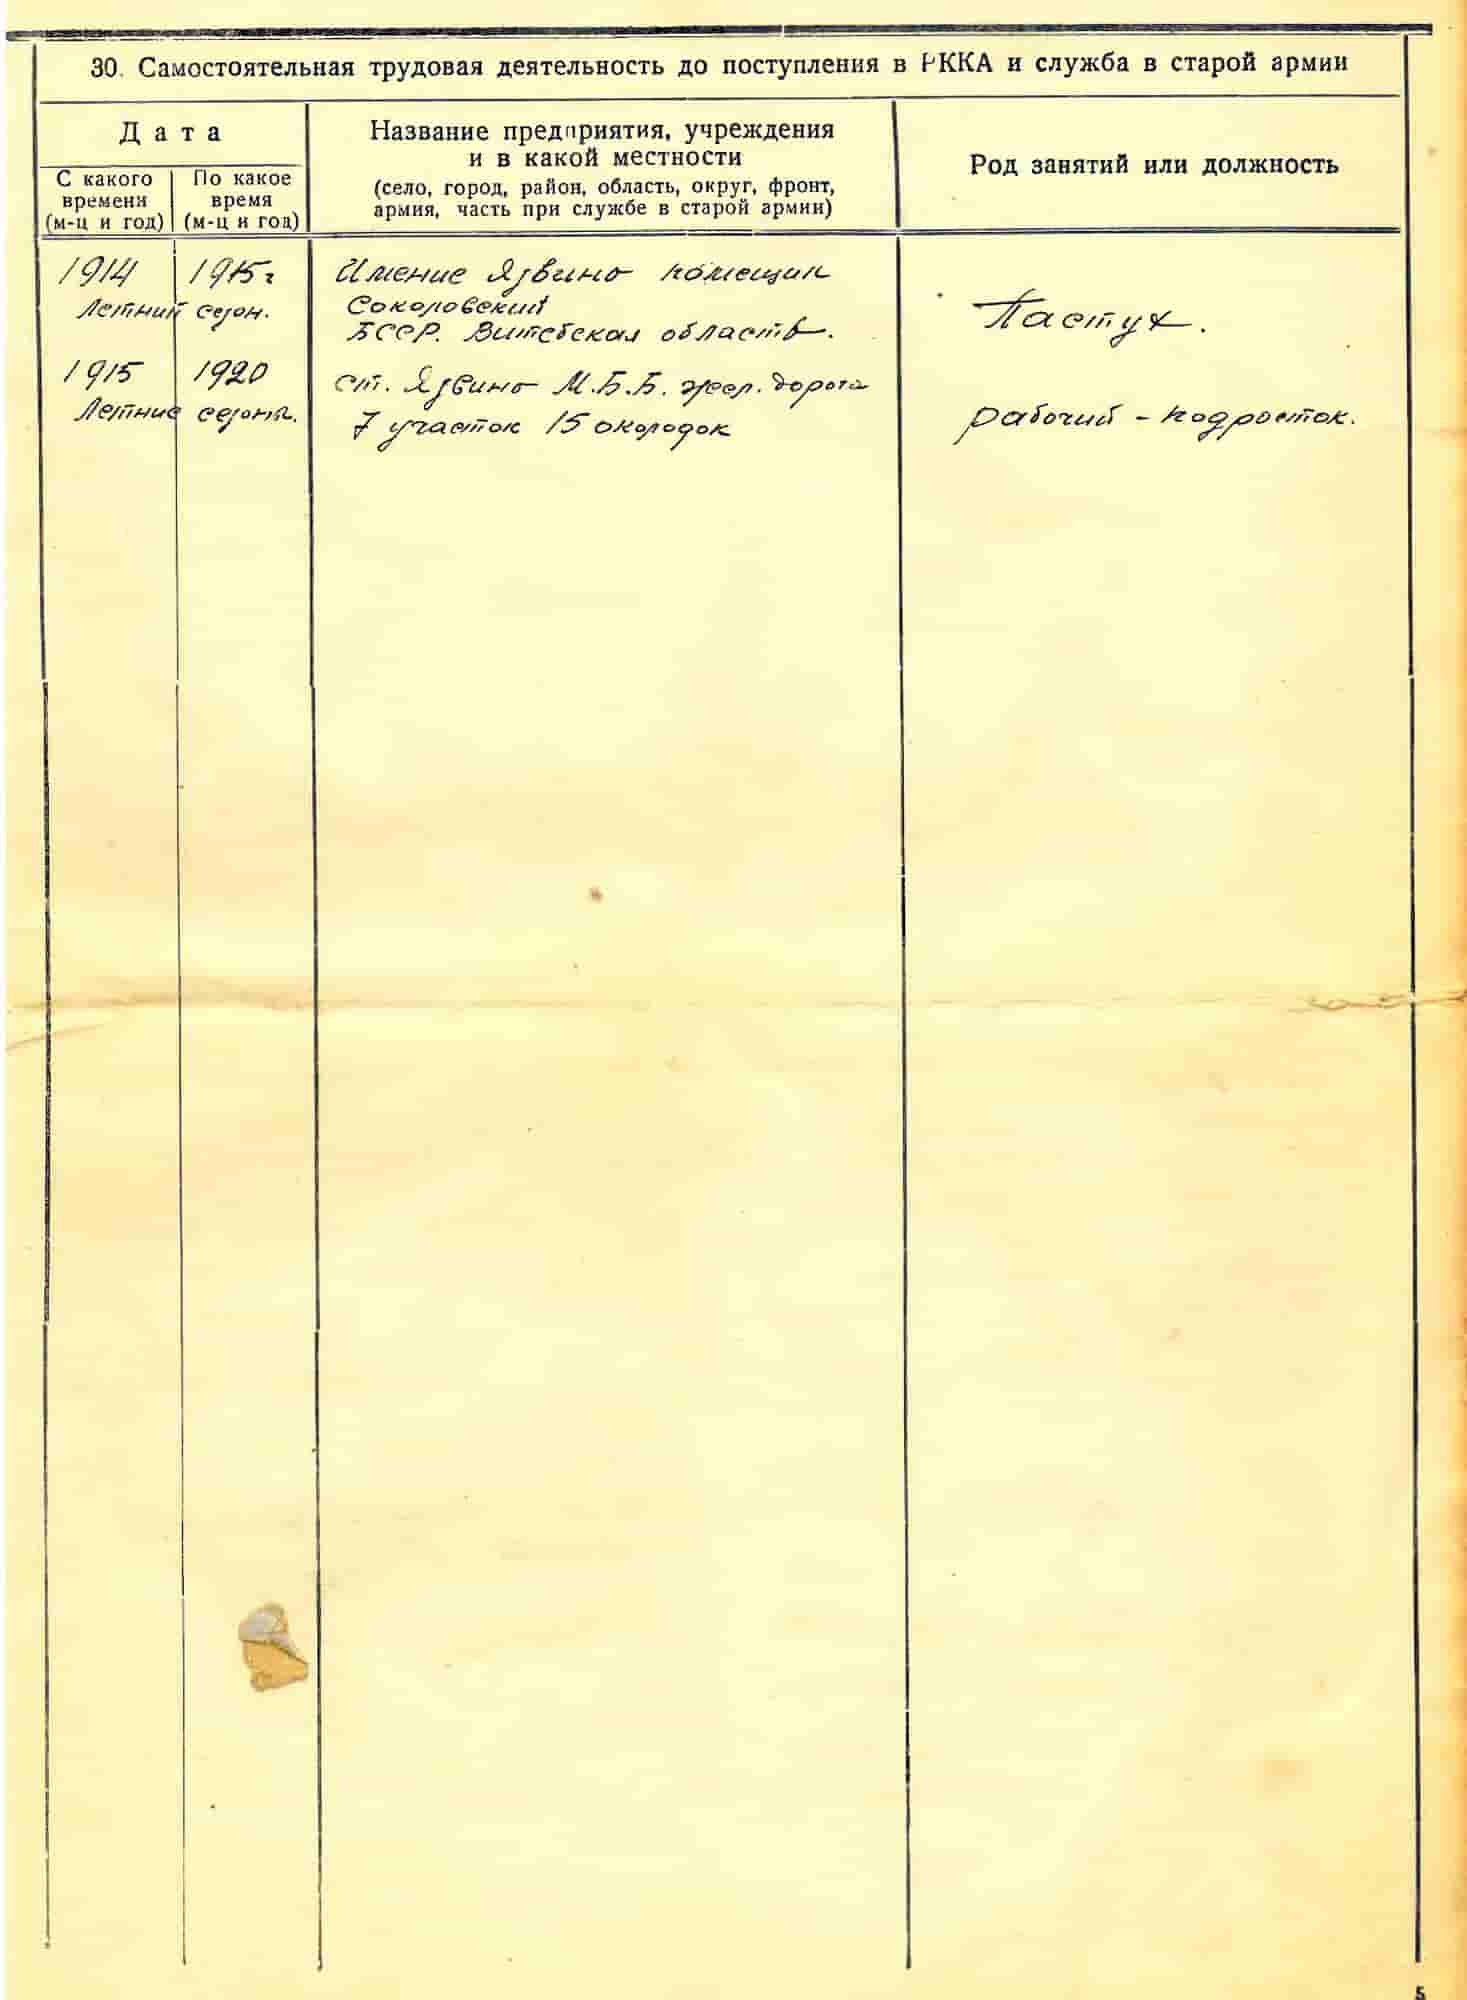 30. Самостоятельная трудовая деятельность до поступления в РККА и служба в старой армии
Дата
Название предприятия, учреждения
и в какой местности
(село, город, район, область, округ, фронт,
армия, часть при службе в старой армии)
Род занятий или должность
С какого
времени
(м-ц и год)
По какое
время
(м-ц и год)
1914 1915г
Летний сезон.
Имение Язвино помещик
Соколовский
БССР. Витебская область.
Пастух.
1915 1920
Летние сезоны.
ст. Язвино М.Б.Б. жел. дорога
7 участок 15 околодок
рабочий - подросток.
5